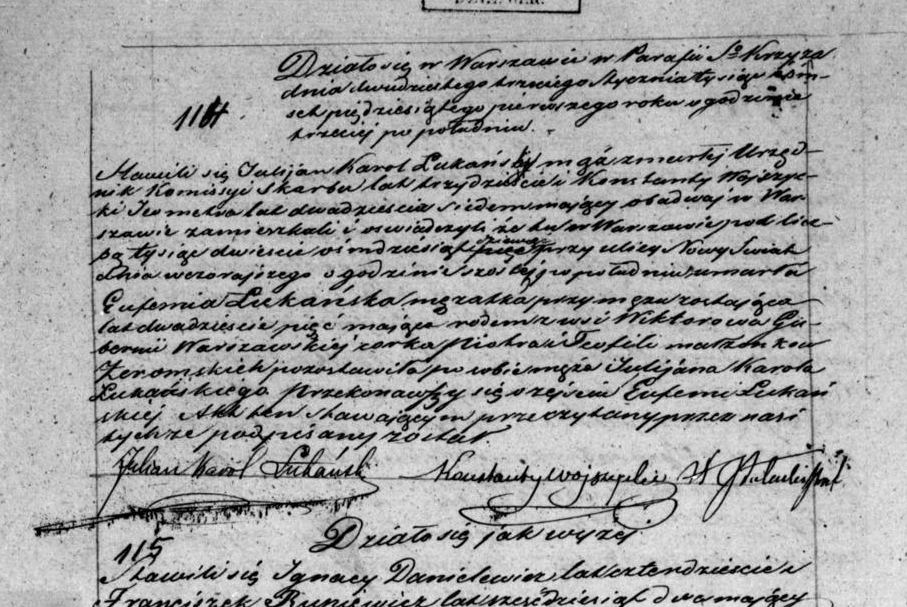 114
Działo się w Warszawie w Parafii Sgo Krzyża
dnia dwudziestego trzeciego stycznia tysiąc ośm-
set pięćdziesiątego pierwszego roku o godzinie
trzeciej po południu.
Stawili się Julijan Karol Łukański mąż zmarłej Urzęd-
nik Komissyi skarbu lat trzydzieści i Konstanty Wojszyc-
ki Jeometra lat dwadzieścia siedem mający obadwaj w War-
szawie zamieszkali i oświadczyli że tu w Warszawie pod licz-
bą tysiąc dwieście ośmdziesiąt przy ulicy Nowy Świat
dnia wczorajszego o godzinie szóstej po południu umarła
Eufemia Łukańska mężatka przy mężu zostająca
lat dwadzieścia pięć mająca rodem z wsi Wiktorowa Gu-
bernii Warszawskiej córka Piotra i Teofili małżonków
Żeromskich pozostawiła po sobie męża Julijana Karola
Łukańskiego. Przekonawszy się o zejściu Eufemi Łukań-
skiej Akt ten stawającym przeczytany przez nas i
tychże podpisany został.
Julian Karol Łukański Konstanty
115
Działo się jak wyżej
Stawili się Ignacy Danielewicz lat czterdzieści i
Franciszek lat sześćdziesiąt dwa mający